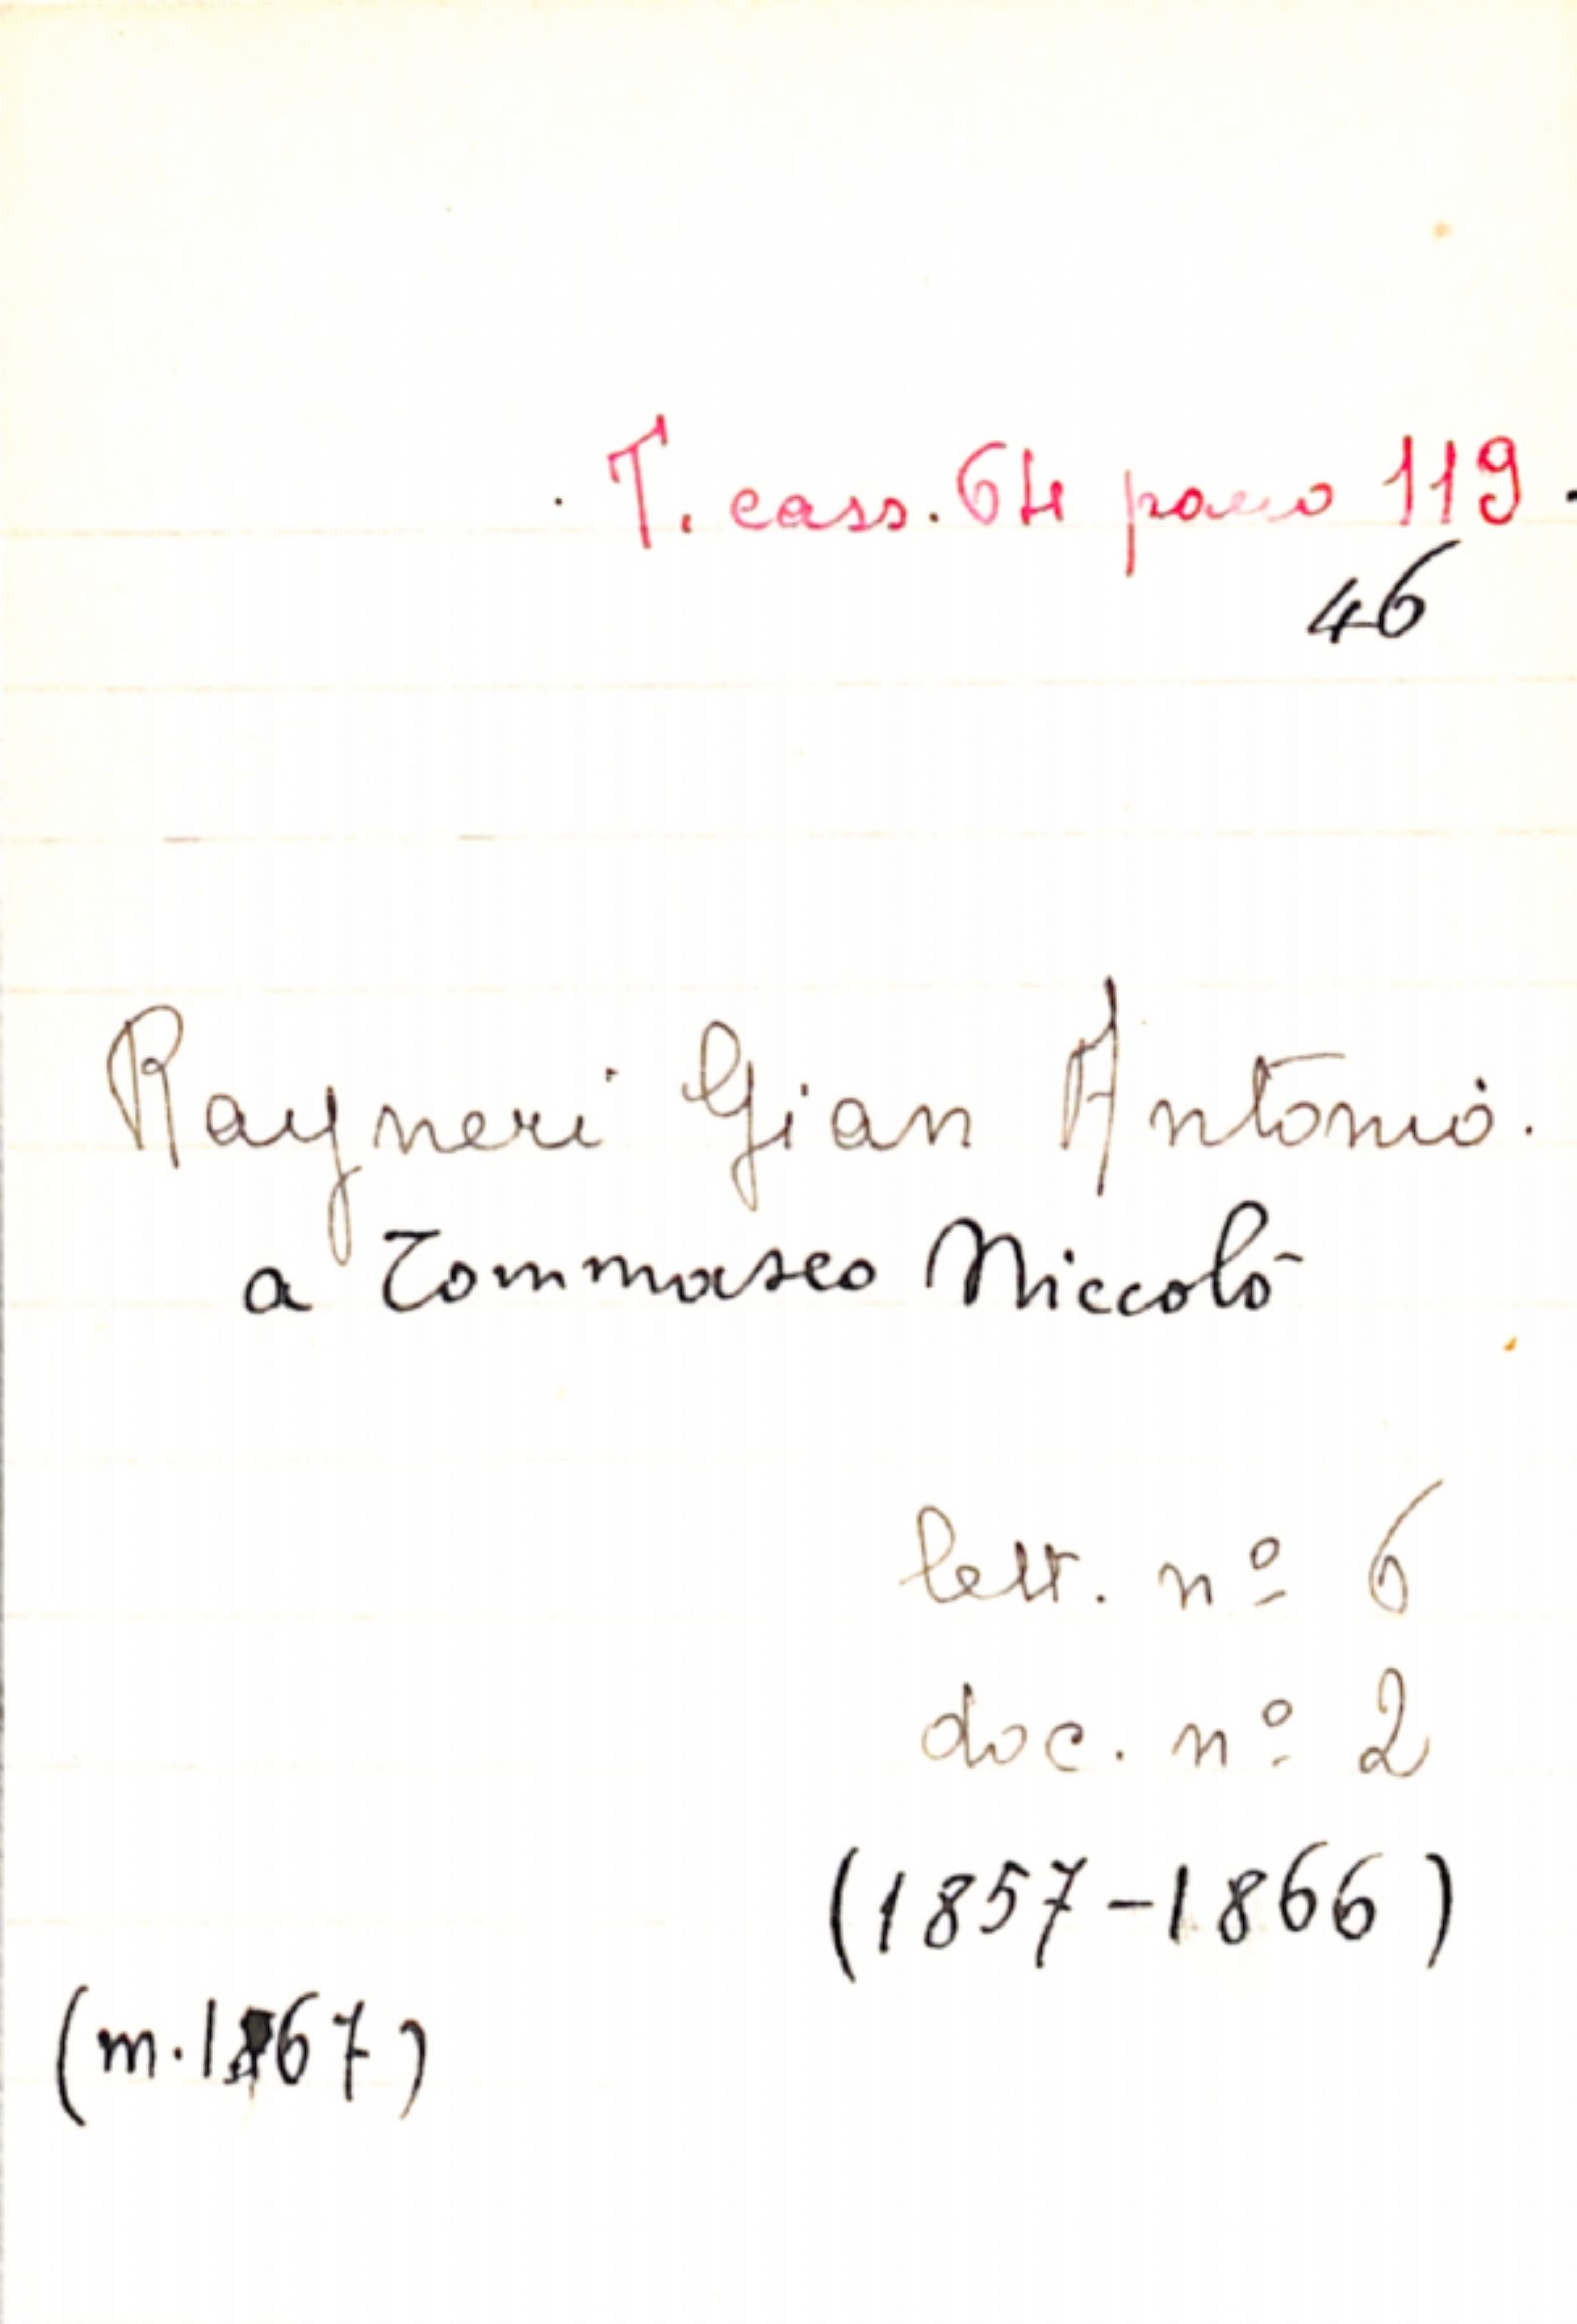 T. cass. 64 pacco 119.
46
Rayneri Gian Antonio.
a Tommaseo Niccolò
lett. nº 6
doc. nº 2
(1857-1866)
(m. 1867)